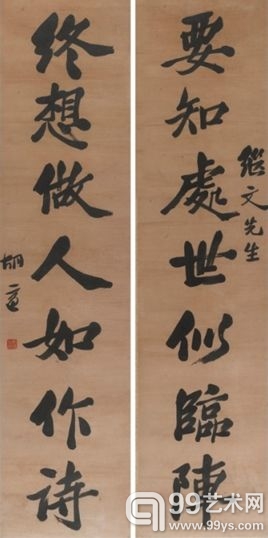 要知處世似臨陣
繼文先生
終想做人如作詩
胡
99艺术网
www.99ys.com